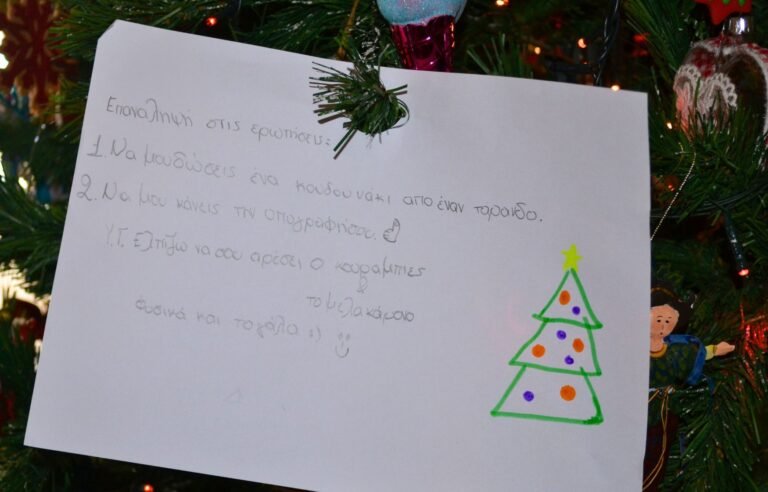 Επαναληψή στις ερωτήσεις:
1. Να μου δώσεις ένα κουδουνάκι από έναν τάρανδο.
2. Να μου κάνεις την υπογραφή σου.
Υ.Γ. Ελπίζω να σου αρέσει ο κουραμπιες
&
το μελακάμονο
φυσικά και το γάλα :)